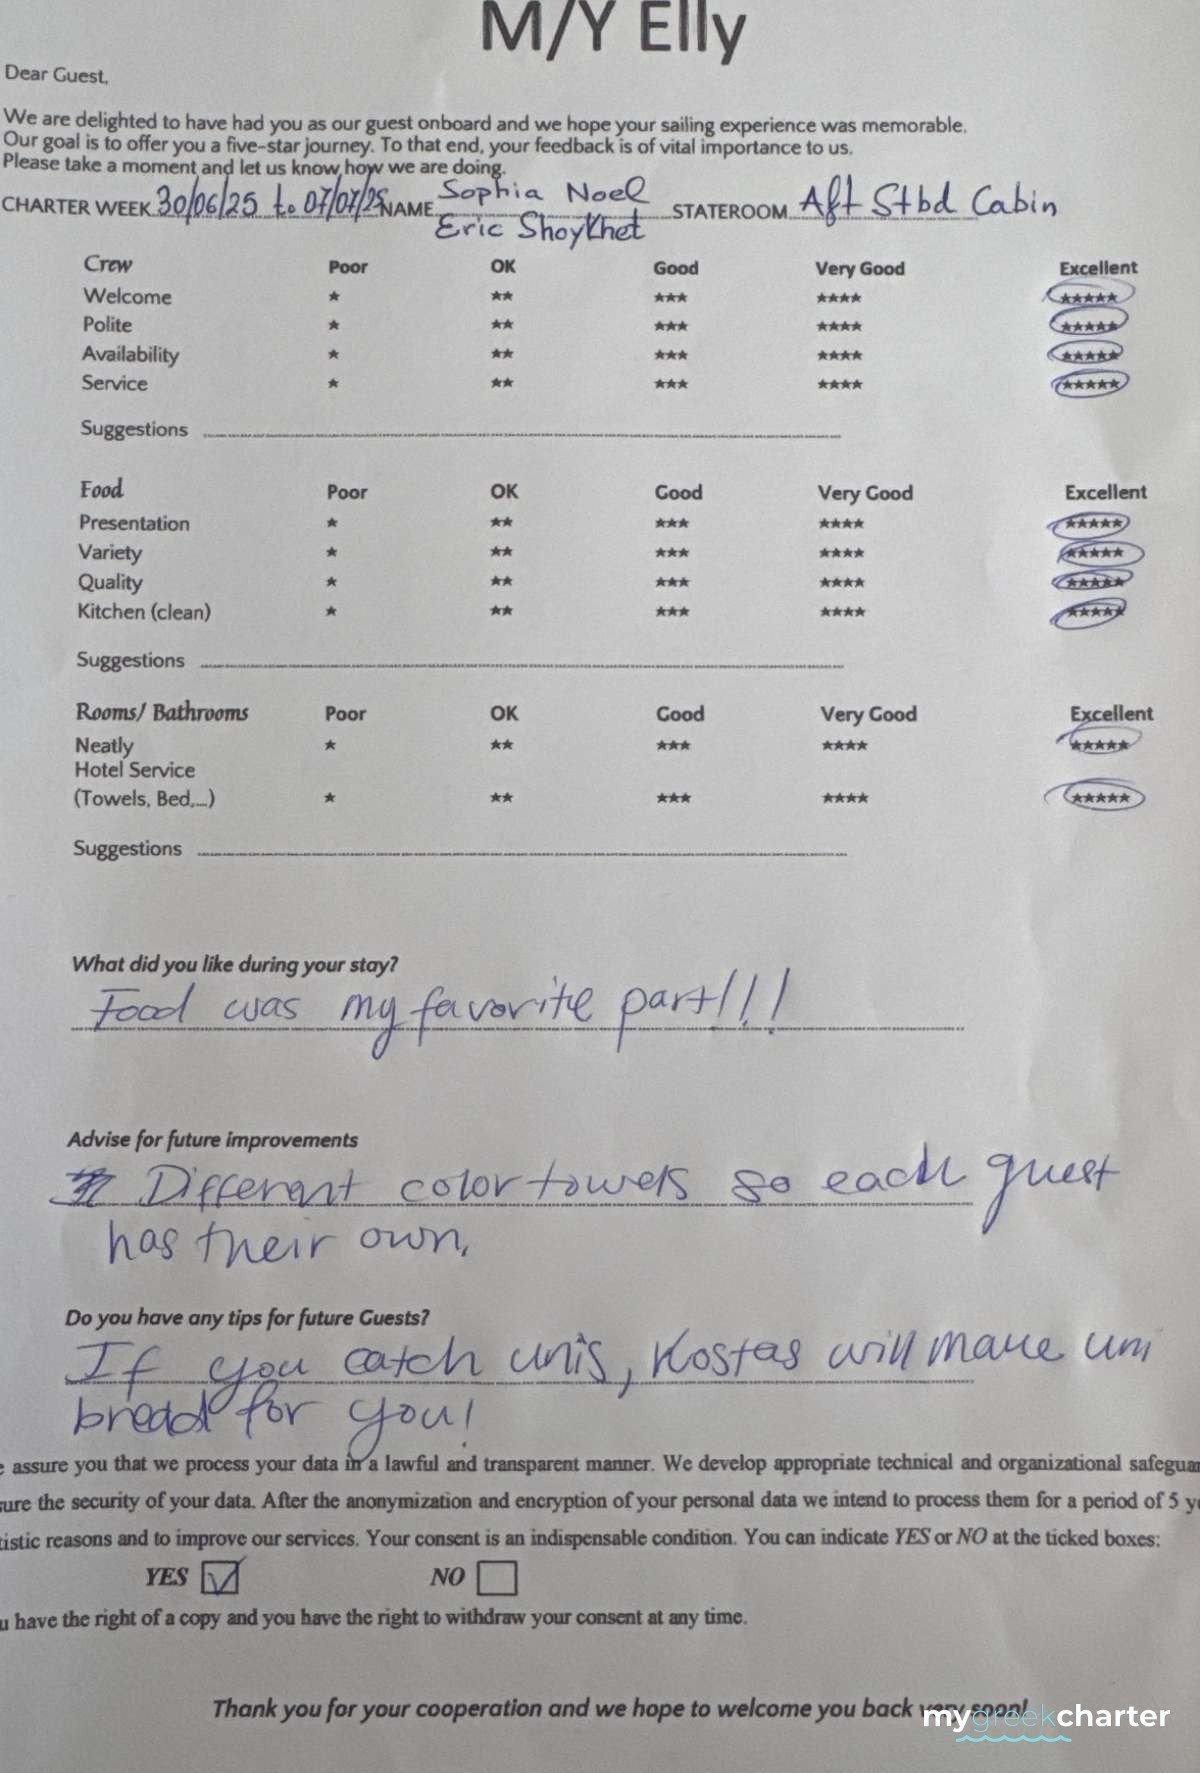 M/Y Elly
Dear Guest,
We are delighted to have had you as our guest onboard and we hope your sailing experience was memorable.
Our goal is to offer you a five-star journey. To that end, your feedback is of vital importance to us.
Please take a moment and let us know how we are doing.
CHARTER WEEK 30/06/25 to 07/07/25 NAME Sophia Noel STATEROOM Aft Stbd Cabin
Eric Shoykhet
Crew Poor OK Good Very Good Excellent
Welcome ★ ★★ ★★★ ★★★★ ★★★★★
Polite ★ ★★ ★★★ ★★★★ ★★★★★
Availability ★ ★★ ★★★ ★★★★ ★★★★★
Service ★ ★★ ★★★ ★★★★ ★★★★★
Suggestions
Food Poor OK Good Very Good Excellent
Presentation ★ ★★ ★★★ ★★★★ ★★★★★
Variety ★ ★★ ★★★ ★★★★ ★★★★★
Quality ★ ★★ ★★★ ★★★★ ★★★★★
Kitchen (clean) ★ ★★ ★★★ ★★★★ ★★★★★
Suggestions
Rooms/ Bathrooms Poor OK Good Very Good Excellent
Neatly ★ ★★ ★★★ ★★★★ ★★★★★
Hotel Service
(Towels, Bed,...) ★ ★★ ★★★ ★★★★ ★★★★★
Suggestions
What did you like during your stay?
Food was my favorite part!!!
Advise for future improvements
Different color towels so each guest
has their own.
Do you have any tips for future Guests?
If you catch unis, Kostas will make uni
bread for you!
e assure you that we process your data in a lawful and transparent manner. We develop appropriate technical and organizational safeguar
sure the security of your data. After the anonymization and encryption of your personal data we intend to process them for a period of 5 ye
tistic reasons and to improve our services. Your consent is an indispensable condition. You can indicate YES or NO at the ticked boxes:
YES NO
u have the right of a copy and you have the right to withdraw your consent at any time.
Thank you for your cooperation and we hope to welcome you back very soon!
mygreekcharter